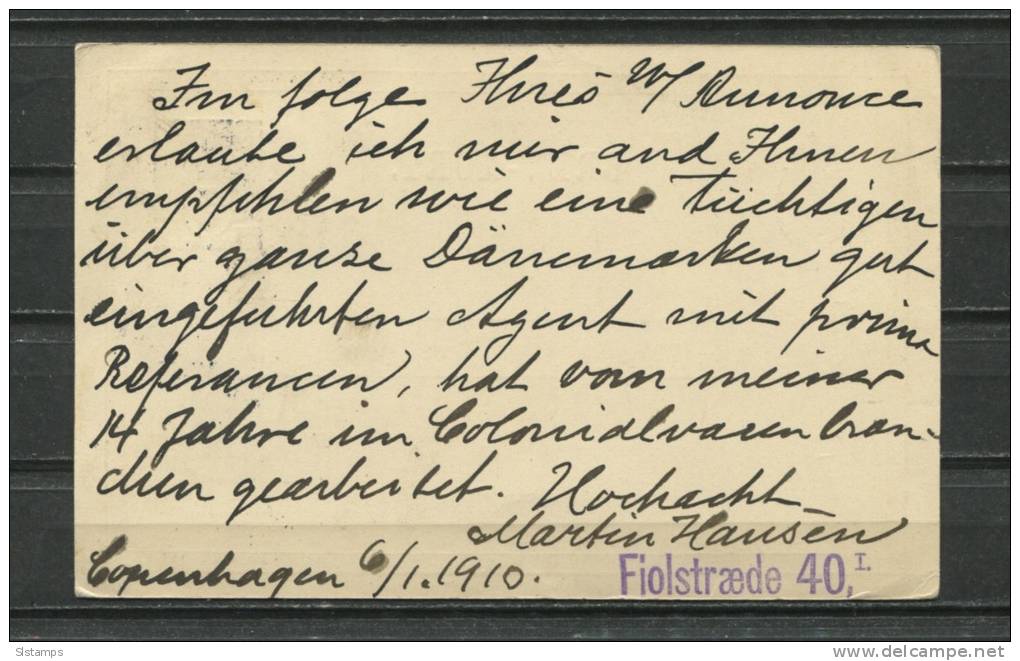 Im folge Ihres W/ Annonce
erlaube ich mir and Ihnen
empfehlen wie eine tüchtigen
über ganze Dänemarken gut
eingefuhrten Agent mit prima
Referancen, hat vom meiner
14 Jahre im Colonialvaren bran-
chen gearbeitet. Hochacht
Martin Hansen
Copenhagen 6/1.1910.
Fiolstræde 40, I.
Slstamps
www.delcampe.net